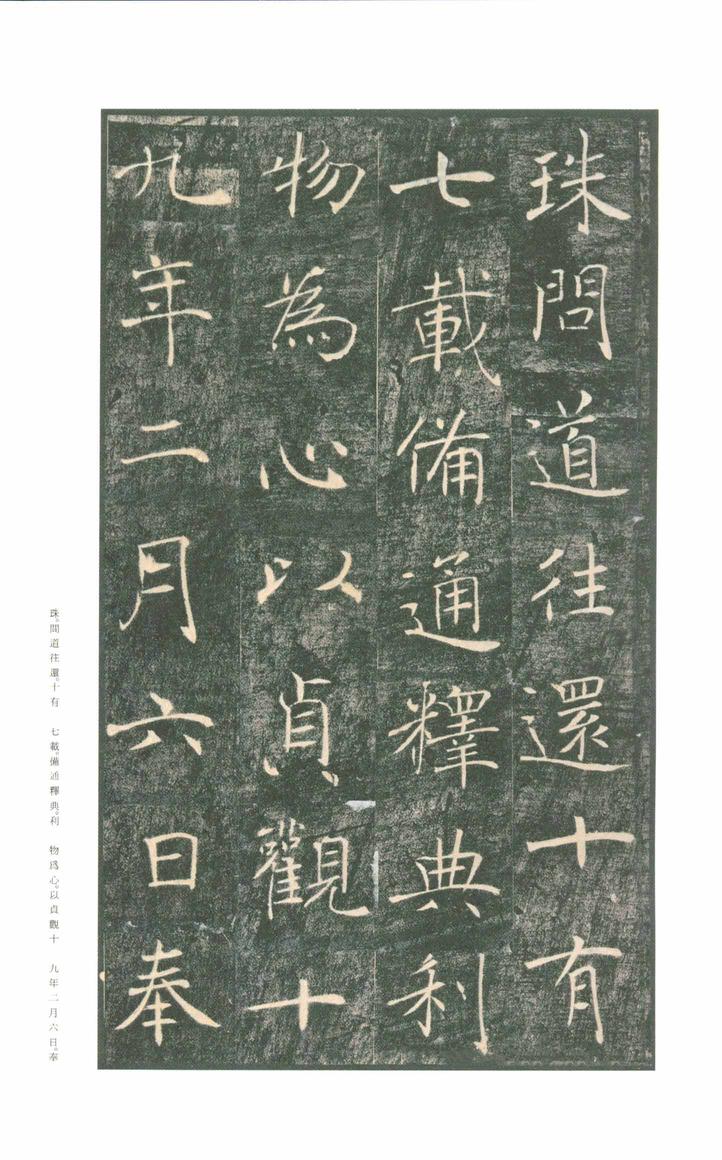 珠問道往還十有
七載備通釋典利
物為心以貞觀十
九年二月六日奉
珠。問道往還。十有　七載。備通釋典。利　物爲心。以貞觀十　九年二月六日。奉